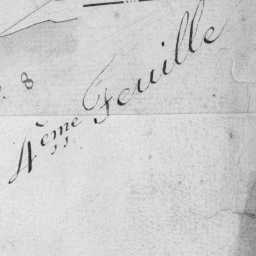 8
4ème Feuille